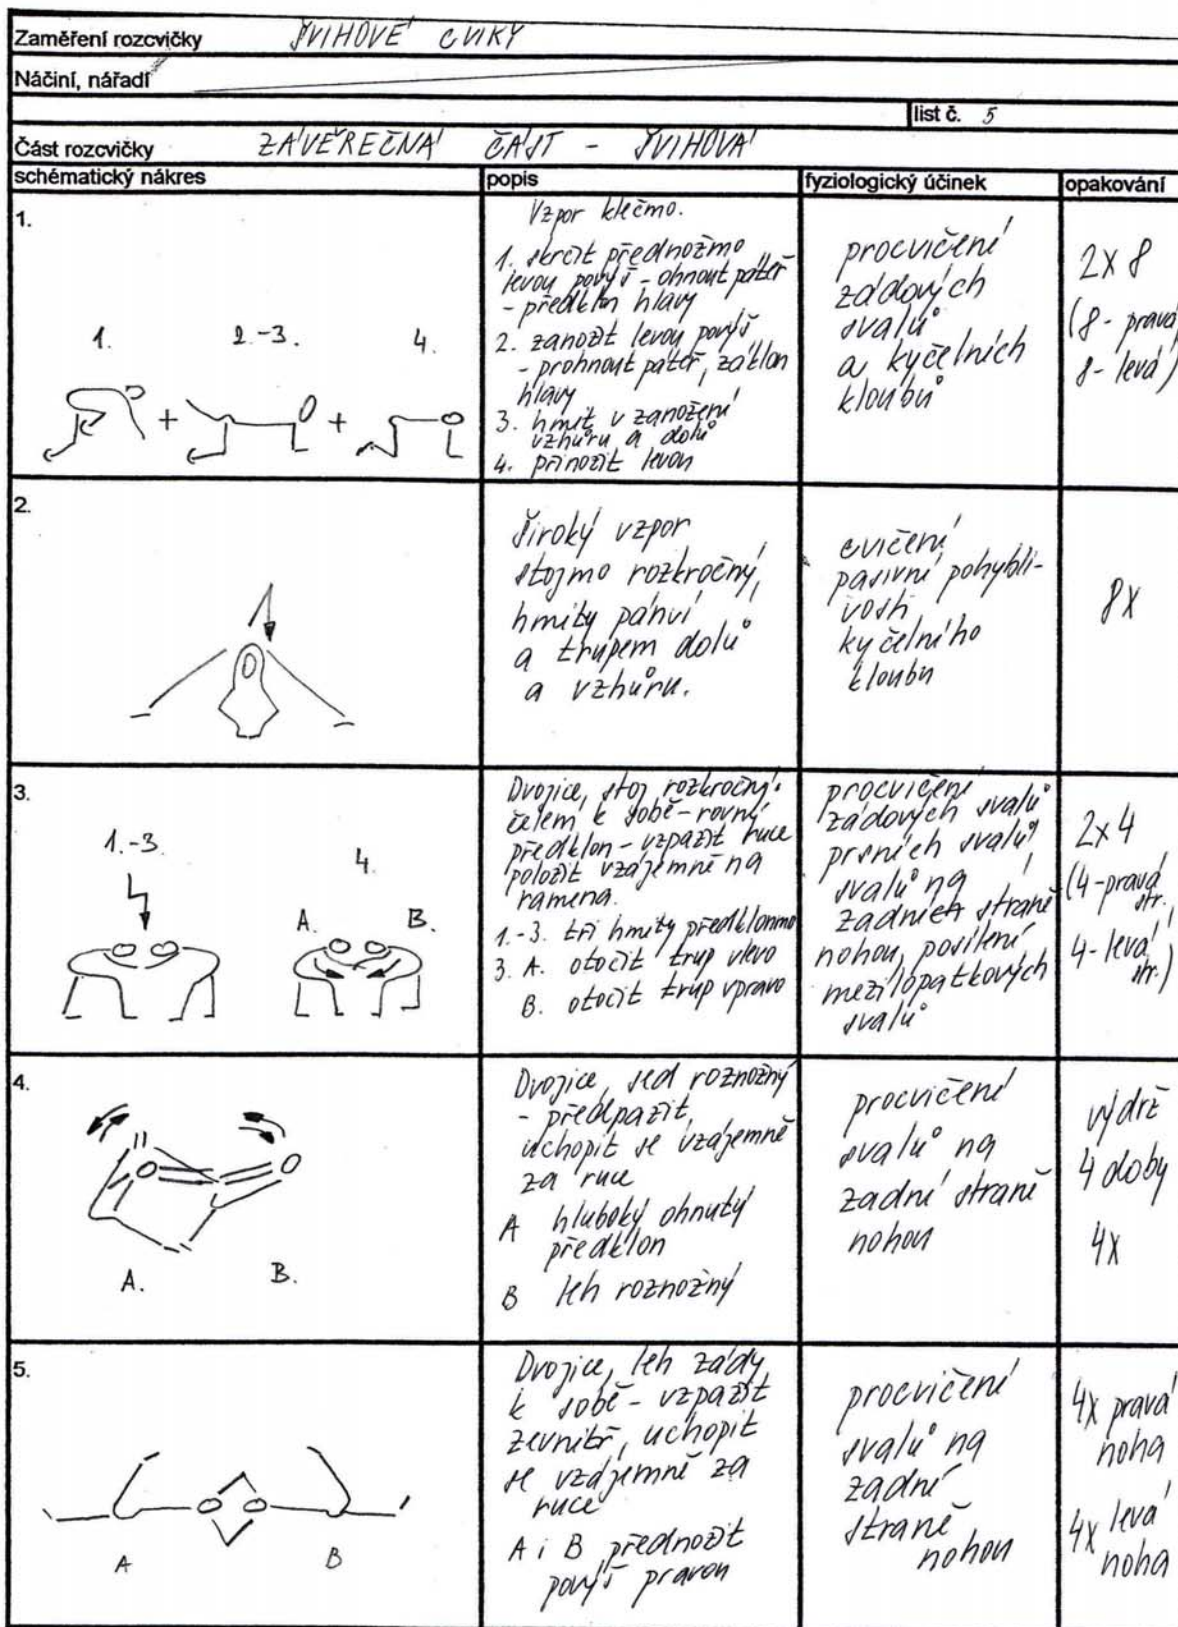 Zaměření rozcvičky ŠVIHOVÉ CVIKY
Náčiní, nářadí
list č. 5
Část rozcvičky ZÁVĚREČNÁ ČÁST - ŠVIHOVÁ
schématický nákres popis fyziologický účinek opakování
1.
1. 2.-3. 4.
+ +
Vzpor klečmo.
1. skrčit přednožmo
levou povýš - ohnout páteř
- předklon hlavy
2. zanožit levou povýš
- prohnout páteř, záklon
hlavy
3. hmit v zanožení
vzhůru a dolů
4. přinožit levou
procvičení
zádových
svalů
a kyčelních
kloubů
2x8
(8 - pravá
8 - levá)
2.
široký vzpor
stojmo rozkročný,
hmity pánví
a trupem dolů
a vzhůru.
cvičení
pasivní pohybli-
vosti
kyčelního
kloubu
8x
3.
1.-3.
4.
A. B.
Dvojice, stoj rozkročný.
čelem k sobě - rovný
předklon - vzpažit ruce
položit vzájemně na
ramena.
1.-3. tři hmity předklonmo
3. A. otočit trup vlevo
B. otočit trup vpravo
procvičení
zádových svalů
prsních svalů
svalů na
zadní straně
nohou, posílení
mezilopatkových
svalů
2x4
(4-pravá
str.,
4-levá
str.)
4.
A. B.
Dvojice, sed roznožný
- předpažit,
uchopit se vzájemně
za ruce
A hluboký ohnutý
předklon
B leh roznožný
procvičení
svalů na
zadní straně
nohou
výdrž
4 doby
4x
5.
A B
Dvojice, leh zády
k sobě - vzpažit
zevnitř, uchopit
se vzájemně za
ruce
A i B přednožit
povýš pravou
procvičení
svalů na
zadní
straně
nohou
4x pravá
noha
4x levá
noha